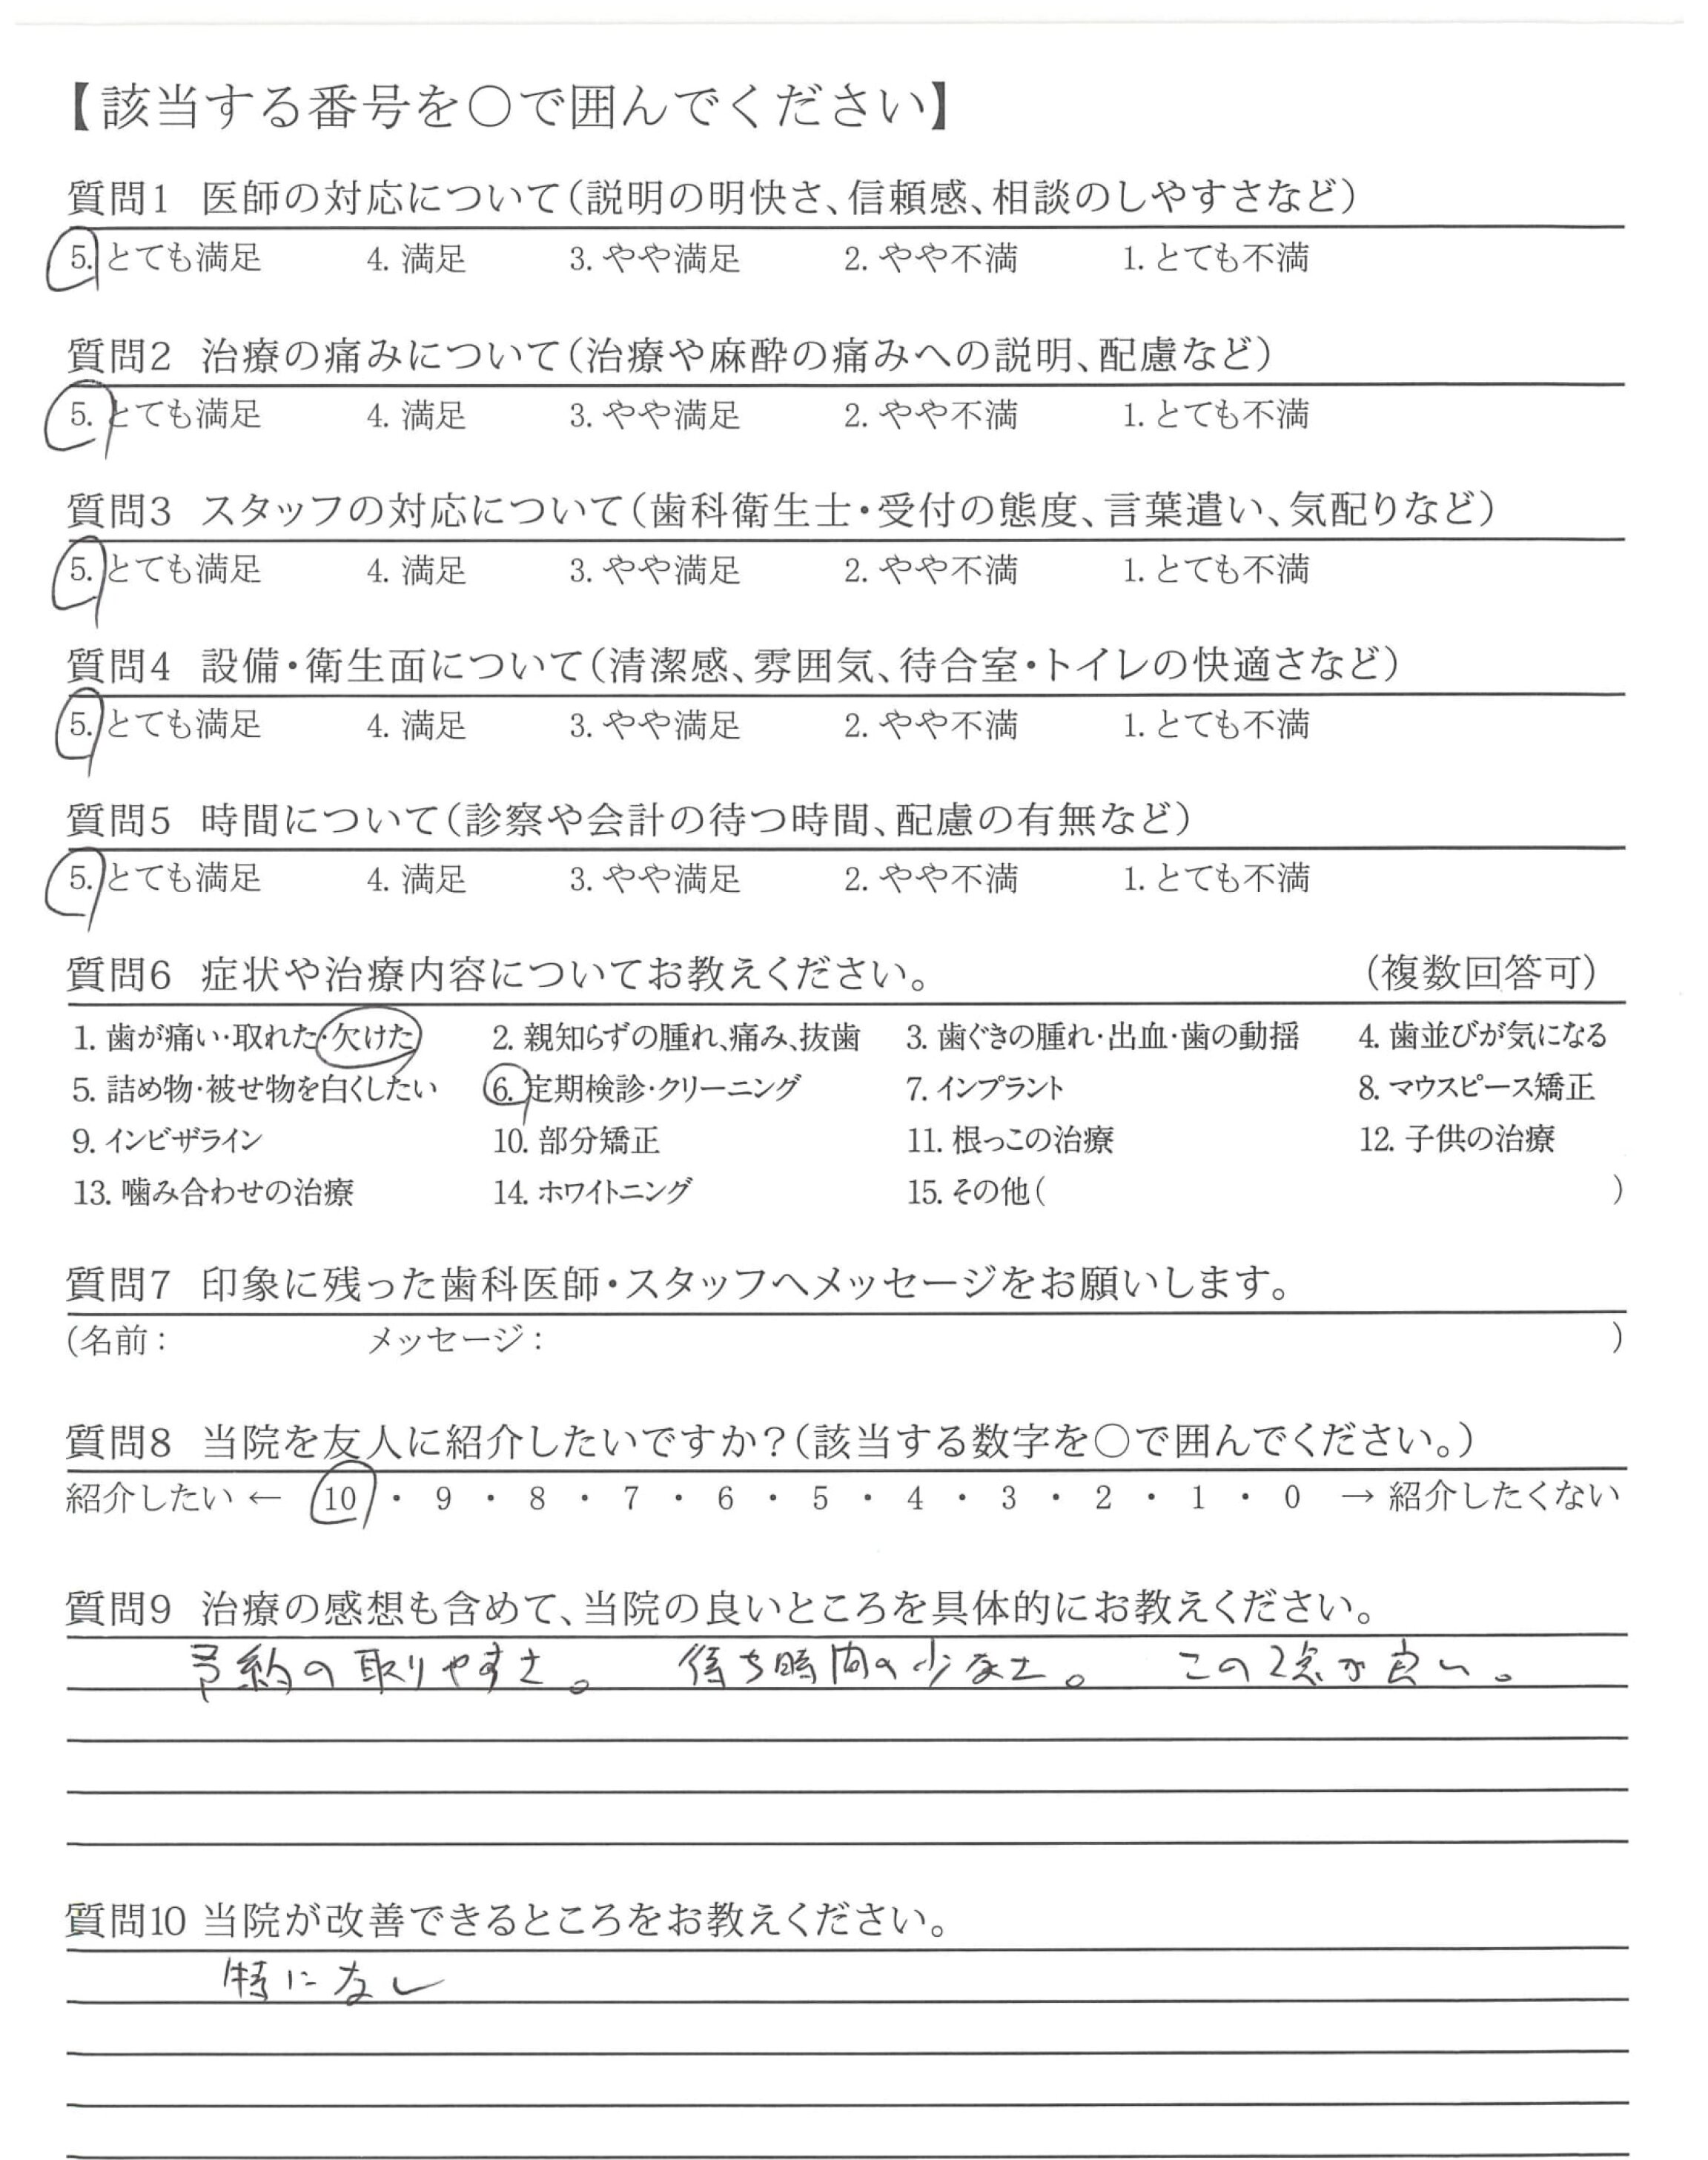 【該当する番号を〇で囲んでください】
質問1 医師の対応について(説明の明快さ、信頼感、相談のしやすさなど)
5. とても満足 4. 満足 3. やや満足 2. やや不満 1. とても不満
質問2 治療の痛みについて(治療や麻酔の痛みへの説明、配慮など)
5. とても満足 4. 満足 3. やや満足 2. やや不満 1. とても不満
質問3 スタッフの対応について(歯科衛生士・受付の態度、言葉遣い、気配りなど)
5. とても満足 4. 満足 3. やや満足 2. やや不満 1. とても不満
質問4 設備・衛生面について(清潔感、雰囲気、待合室・トイレの快適さなど)
5. とても満足 4. 満足 3. やや満足 2. やや不満 1. とても不満
質問5 時間について(診察や会計の待つ時間、配慮の有無など)
5. とても満足 4. 満足 3. やや満足 2. やや不満 1. とても不満
質問6 症状や治療内容についてお教えください。 (複数回答可)
1. 歯が痛い・取れた・欠けた 2. 親知らずの腫れ、痛み、抜歯 3. 歯ぐきの腫れ・出血・歯の動揺 4. 歯並びが気になる
5. 詰め物・被せ物を白くしたい 6. 定期検診・クリーニング 7. インプラント 8. マウスピース矯正
9. インビザライン 10. 部分矯正 11. 根っこの治療 12. 子供の治療
13. 噛み合わせの治療 14. ホワイトニング 15. その他( )
質問7 印象に残った歯科医師・スタッフへメッセージをお願いします。
(名前: メッセージ: )
質問8 当院を友人に紹介したいですか?(該当する数字を〇で囲んでください。)
紹介したい ← 10 ・ 9 ・ 8 ・ 7 ・ 6 ・ 5 ・ 4 ・ 3 ・ 2 ・ 1 ・ 0 → 紹介したくない
質問9 治療の感想も含めて、当院の良いところを具体的にお教えください。
予約の取りやすさ。 待ち時間の少なさ。 この2点が良い。
質問10 当院が改善できるところをお教えください。
特になし